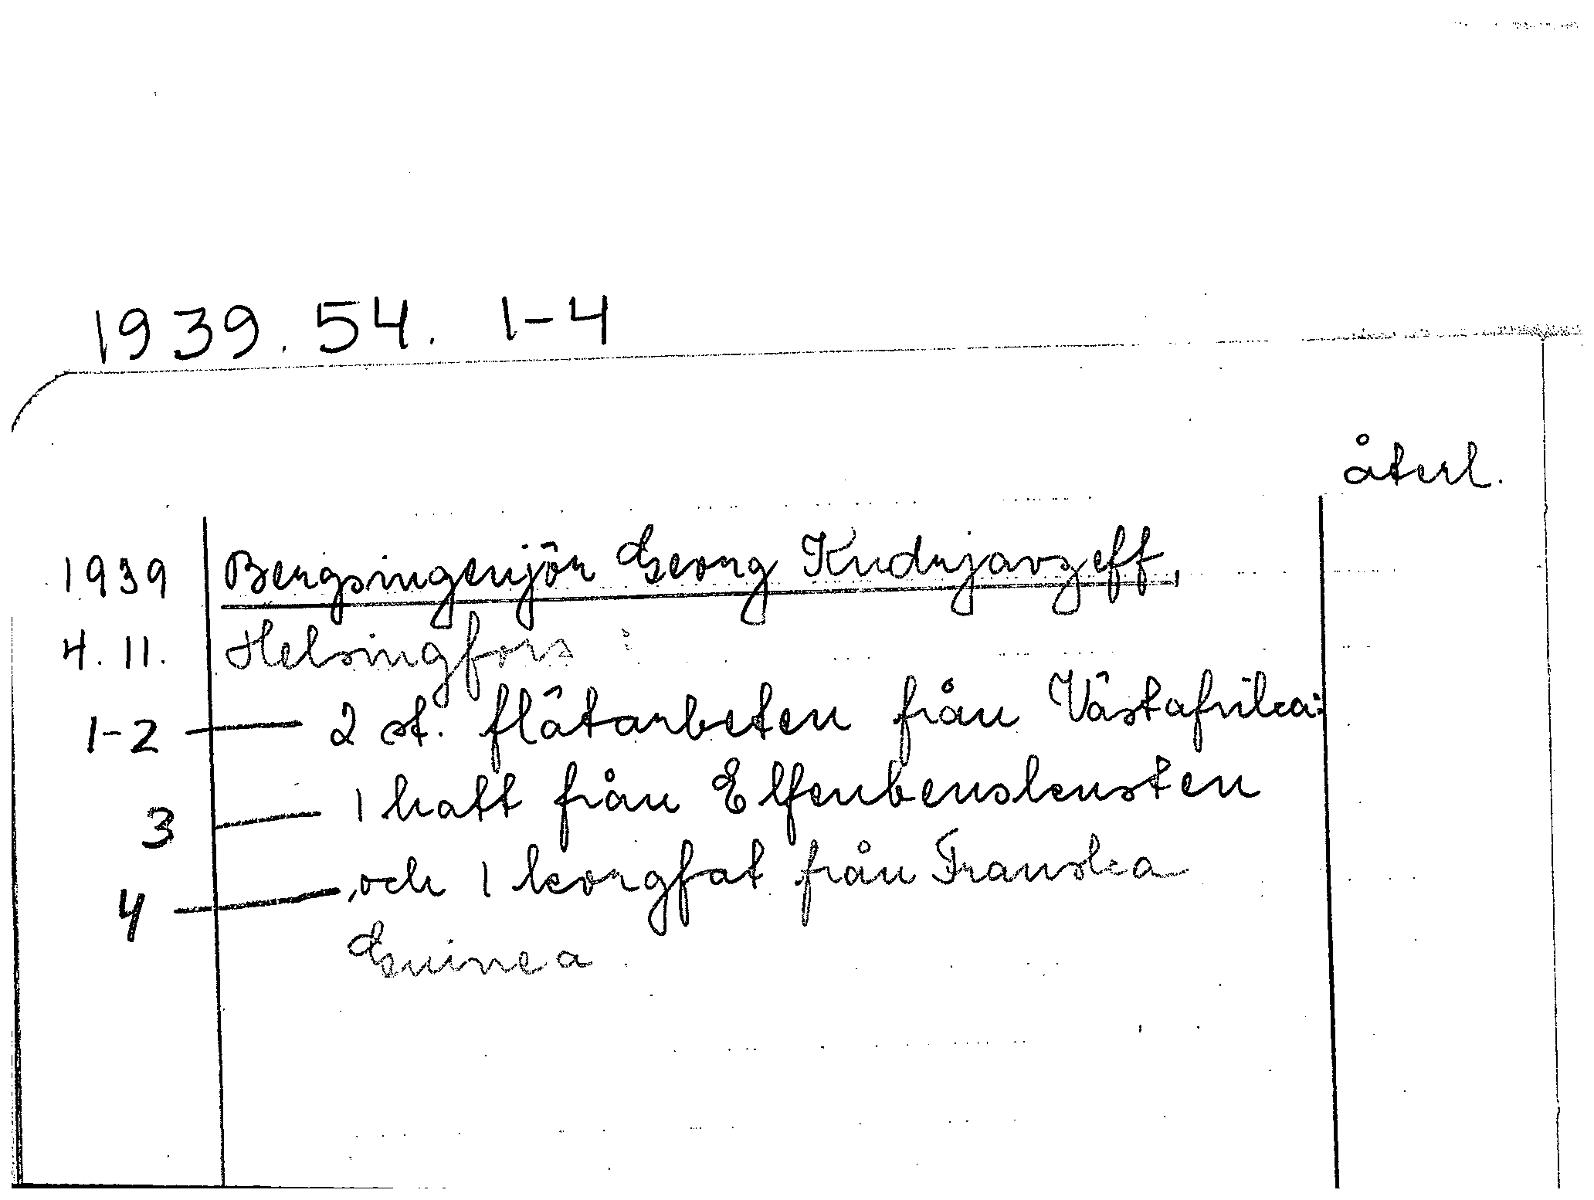 1939. 54. 1-4
återl.
1939 Bergsingenjör Georg Kudrjavzeff,
4. 11. Helsingfors:
1-2 2 st. flätarbeten från Västafrika:
3 1 hatt från Elfenbenskusten
4 och 1 korgfat från Franska
Guinea